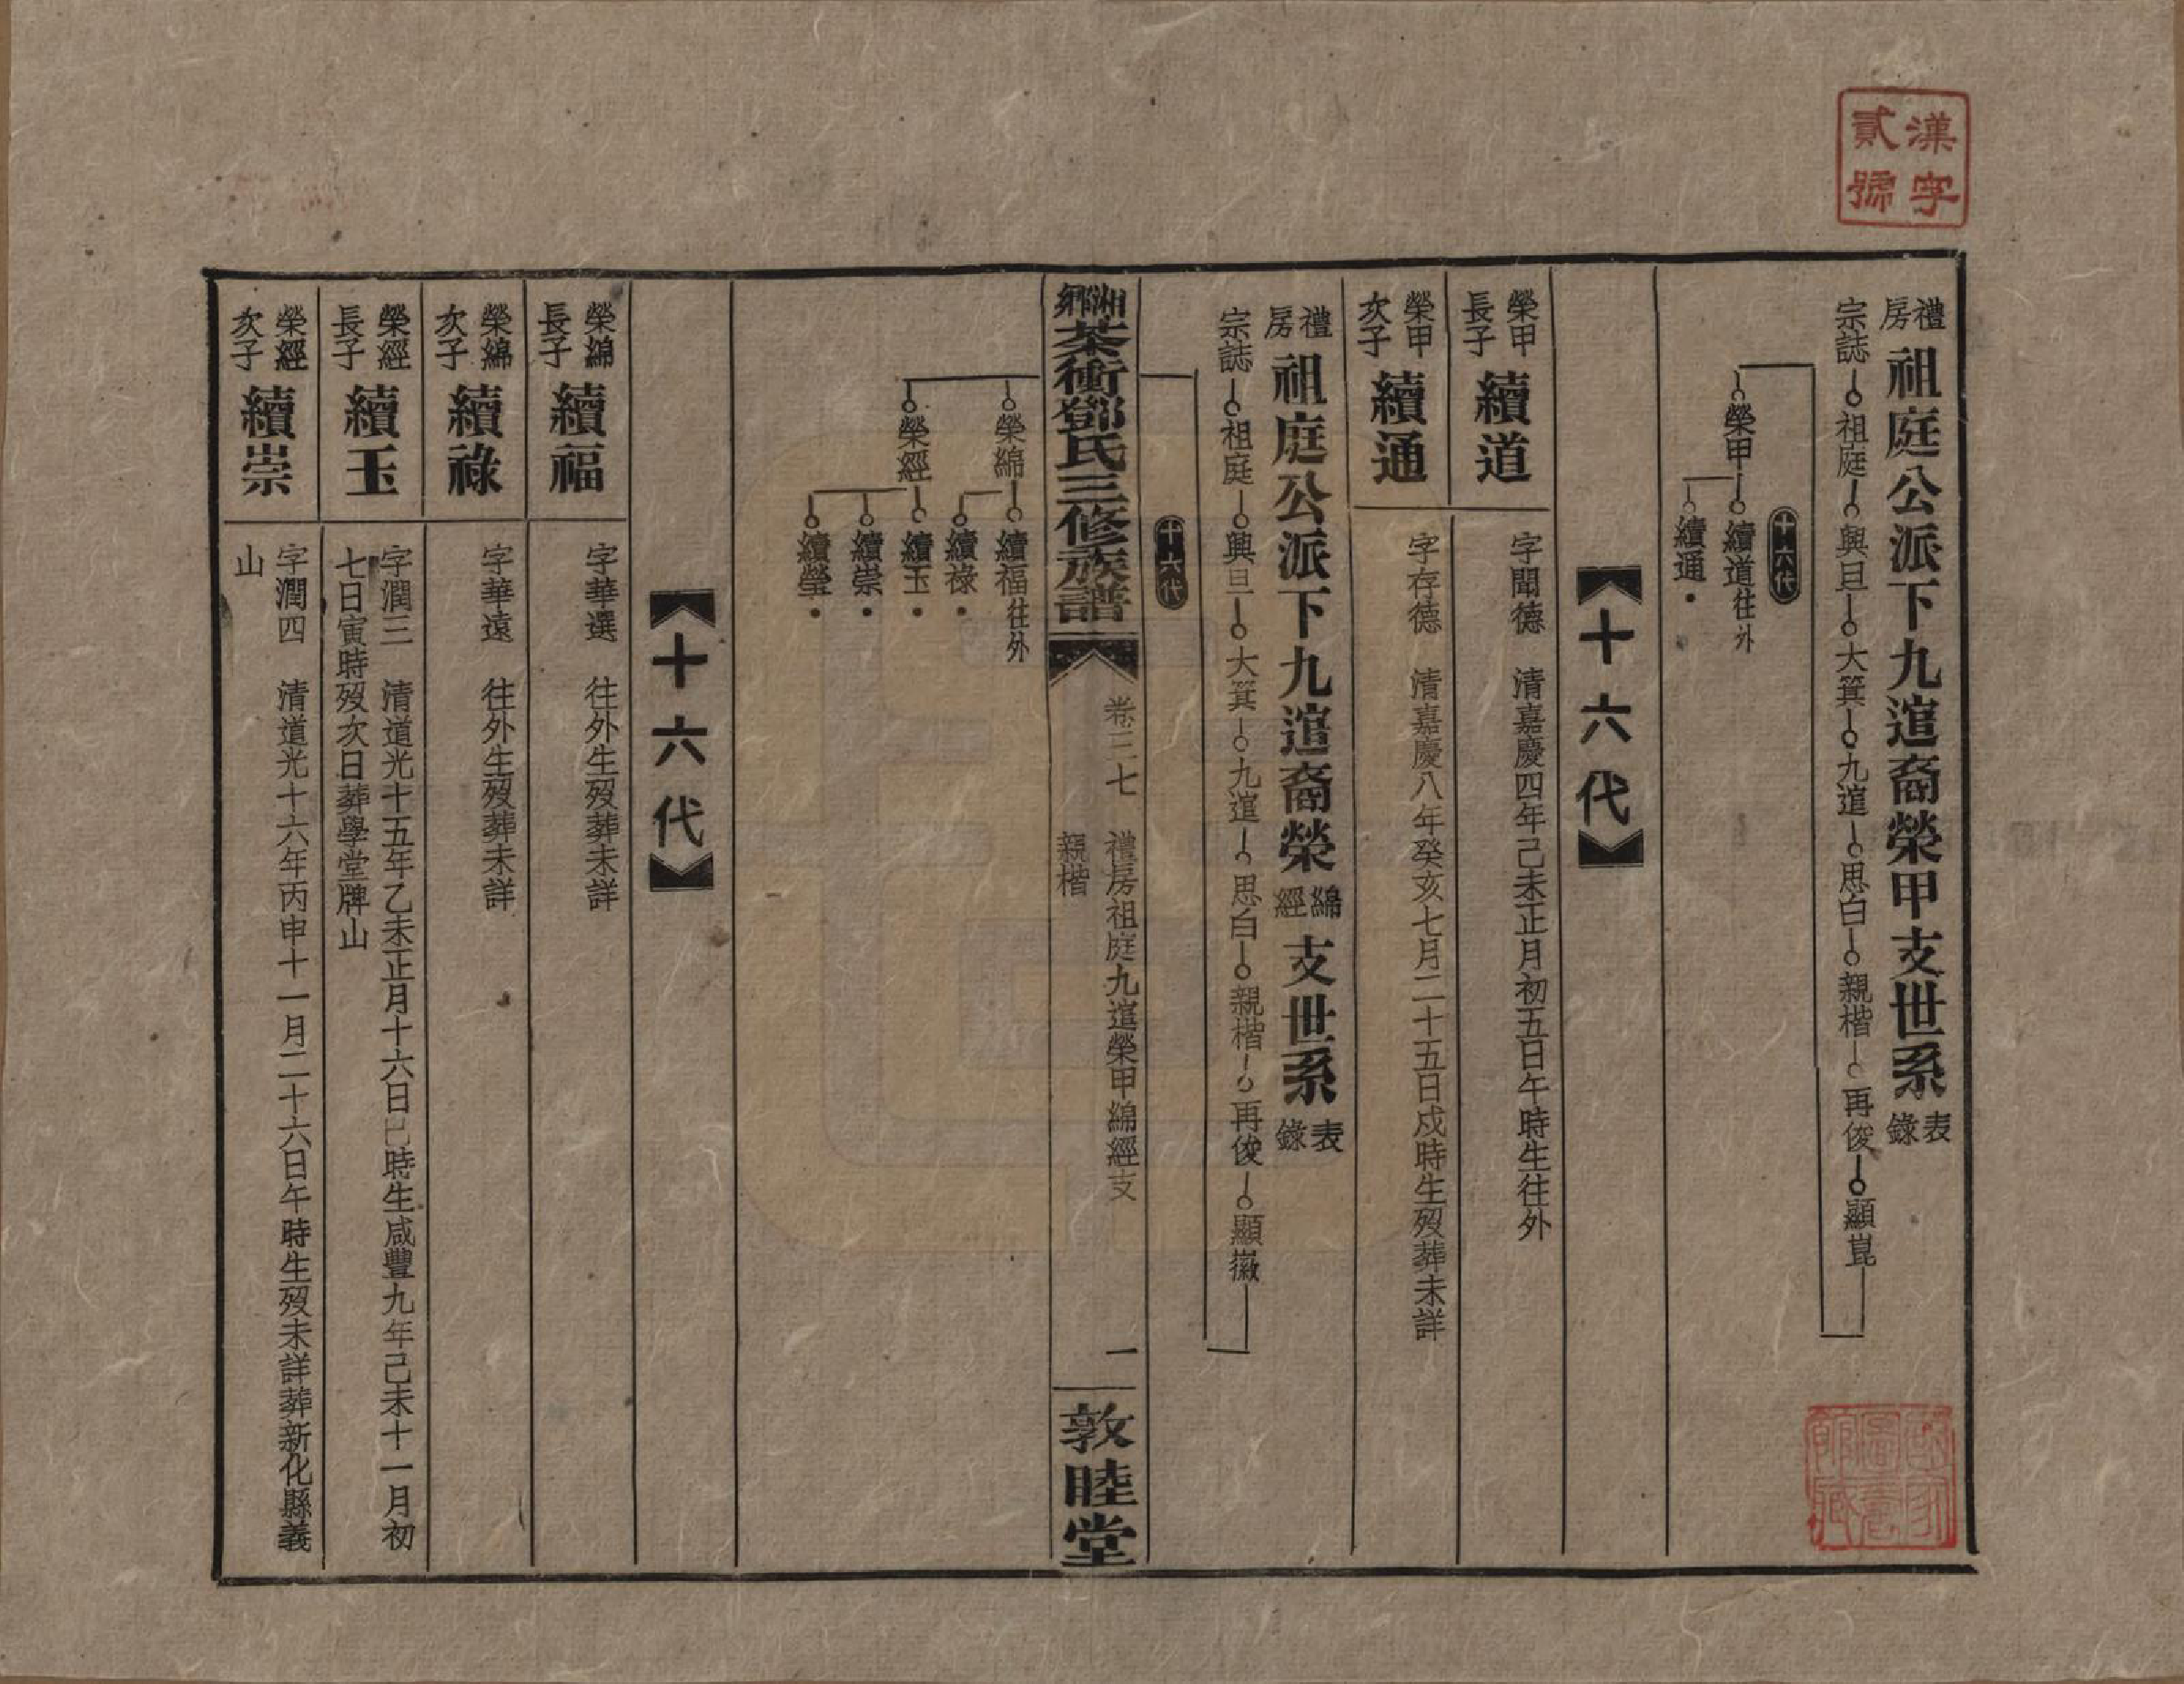 漢字
貳號
禮房祖庭公派下九逭裔榮甲支世系表錄
宗誌 祖庭 興旦 大箕 九逭 思白 親楷 再俊 顯崑
十六代
榮甲 續道往外
續通
十六代
榮甲長子 續道 字聞德 清嘉慶四年己未正月初五日午時生往外
榮甲次子 續通 字存德 清嘉慶八年癸亥七月二十五日戍時生歿葬未詳
禮房祖庭公派下九逭裔榮綿經支世系表錄
宗誌 祖庭 興旦 大箕 九逭 思白 親楷 再俊 顯徽
十六代
湘鄉茶衝鄧氏三修族譜
卷三七 禮房祖庭九逭榮甲綿經支
親楷
一
敦睦堂
榮綿 續福往外
續祿
榮經 續玉
續崇
續瑩
十六代
榮綿長子 續福 字華選 往外生歿葬未詳
榮綿次子 續祿 字華遠 往外生歿葬未詳
榮經長子 續玉 字潤三 清道光十五年乙未正月十六日巳時生咸豐九年己未十一月初
七日寅時歿次日葬學堂牌山
榮經次子 續崇 字潤四 清道光十六年丙申十一月二十六日午時生歿未詳葬新化縣義
山